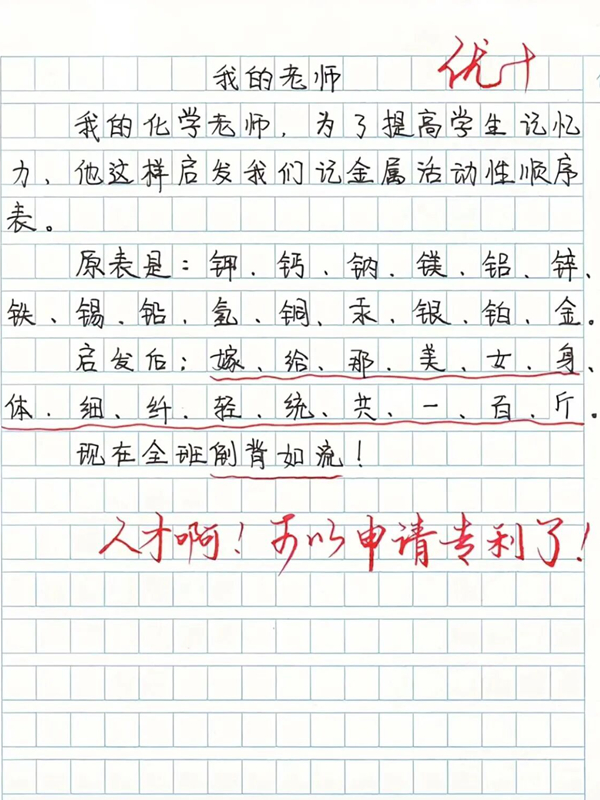 我的老师
优+
我的化学老师，为了提高学生记忆
力、他这样启发我们记金属活动性顺序
表。
原表是：钾、钙、钠、镁、铝、锌、
铁、锡、铅、氢、铜、汞、银、铂、金。
启发后；嫁、给、那、美、女、身、
体、细、纤、轻、统、共、一、百、斤。
现在全班倒背如流！
人才啊！可以申请专利了！